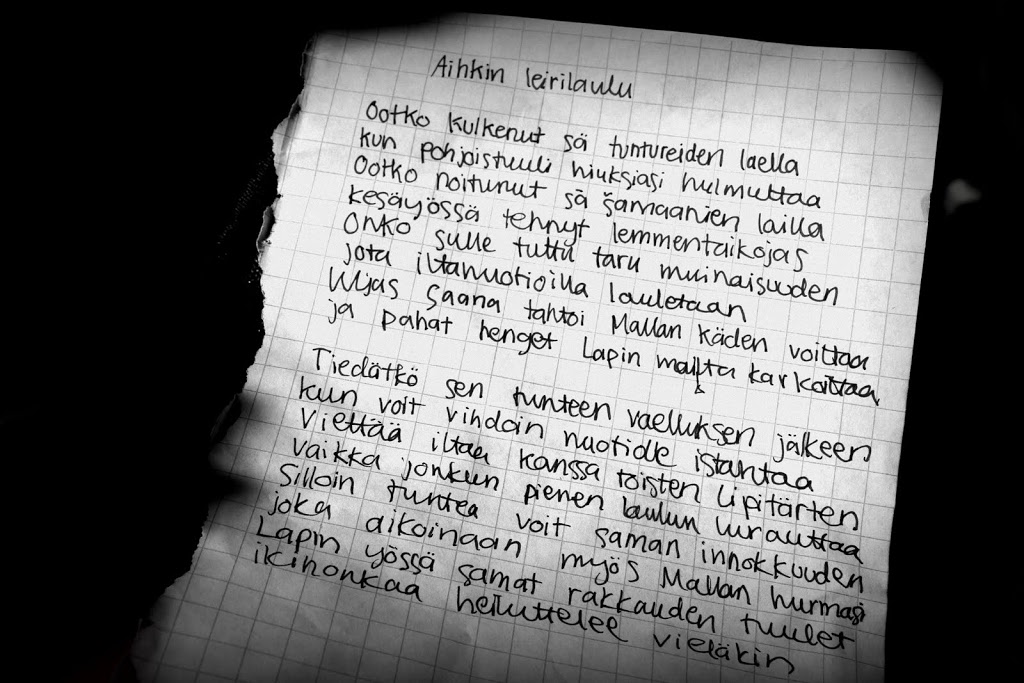 Aihkin leirilaulu
Ootko kulkenut sä tuntureiden laella
kun pohjoistuuli hiuksiasi hulmuttaa
Ootko noitunut sä šamaanien lailla
kesäyössä tehnyt lemmentaikojas
Onko sulle tuttu taru muinaisuuden
jota iltanuotioilla lauletaan
Uljas Saana tahtoi Mallan käden voittaa
ja pahat henget Lapin mailta karkoittaa
Tiedätkö sen tunteen vaelluksen jälkeen
kun voit vihdoin nuotiolle istahtaa
Viettää iltaa kanssa toisten lipitärten
vaikka jonkun pienen laulun lurauttaa
Silloin tuntea voit saman innokkuuden
joka aikoinaan myös Mallan hurmasi
Lapin yössä samat rakkauden tuulet
ikihonkaa heiluttelee vieläkin